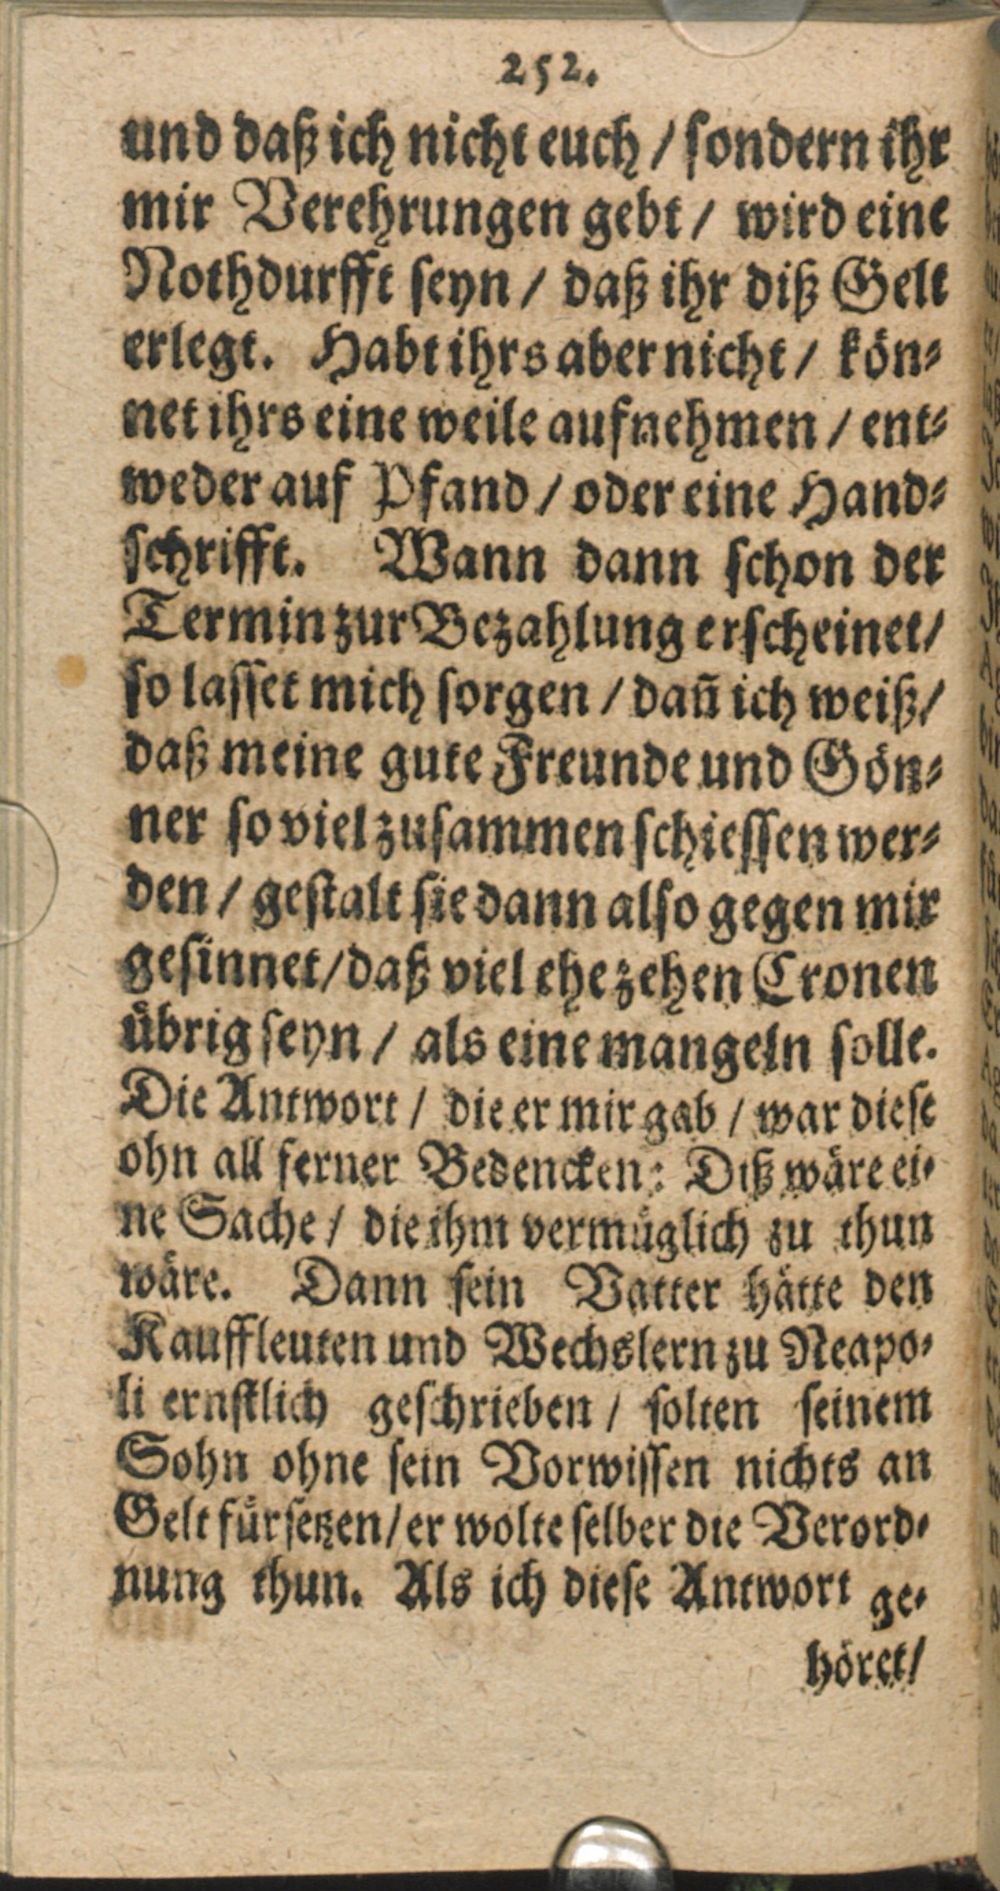 252.
und daß ich nicht euch / sondern ihr
mir Verehrungen gebt / wird eine
Nothdurfft seyn / daß ihr diß Gelt
erlegt. Habt ihrs aber nicht / kön⸗
net ihrs eine weile aufnehmen / ent⸗
weder auf Pfand / oder eine Hand⸗
schrifft. Wann dann schon der
Termin zur Bezahlung erscheinet /
so lasset mich sorgen / dañ ich weiß /
daß meine gute Freunde und Gön⸗
ner so viel zusammen schiessen wer⸗
den / gestalt sie dann also gegen mir
gesinnet / daß viel ehe zehen Cronen
übrig seyn / als eine mangeln solle.
Die Antwort / die er mir gab / war diese
ohn all ferner Bedencken: Diß wäre ei⸗
ne Sache / die ihm vermüglich zu thun
wäre. Dann sein Vatter hätte den
Kauffleuten und Wechslern zu Neapo⸗
li ernstlich geschrieben / solten seinem
Sohn ohne sein Vorwissen nichts an
Gelt fürsetzen / er wolte selber die Verord⸗
nung thun. Als ich diese Antwort ge⸗
höret /